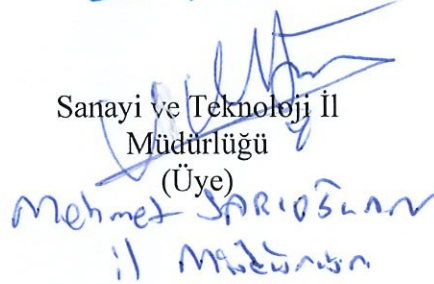 Sanayi ve Teknoloji İl
Müdürlüğü
(Üye)
Mehmet SARIOĞLAN
il Müdürü